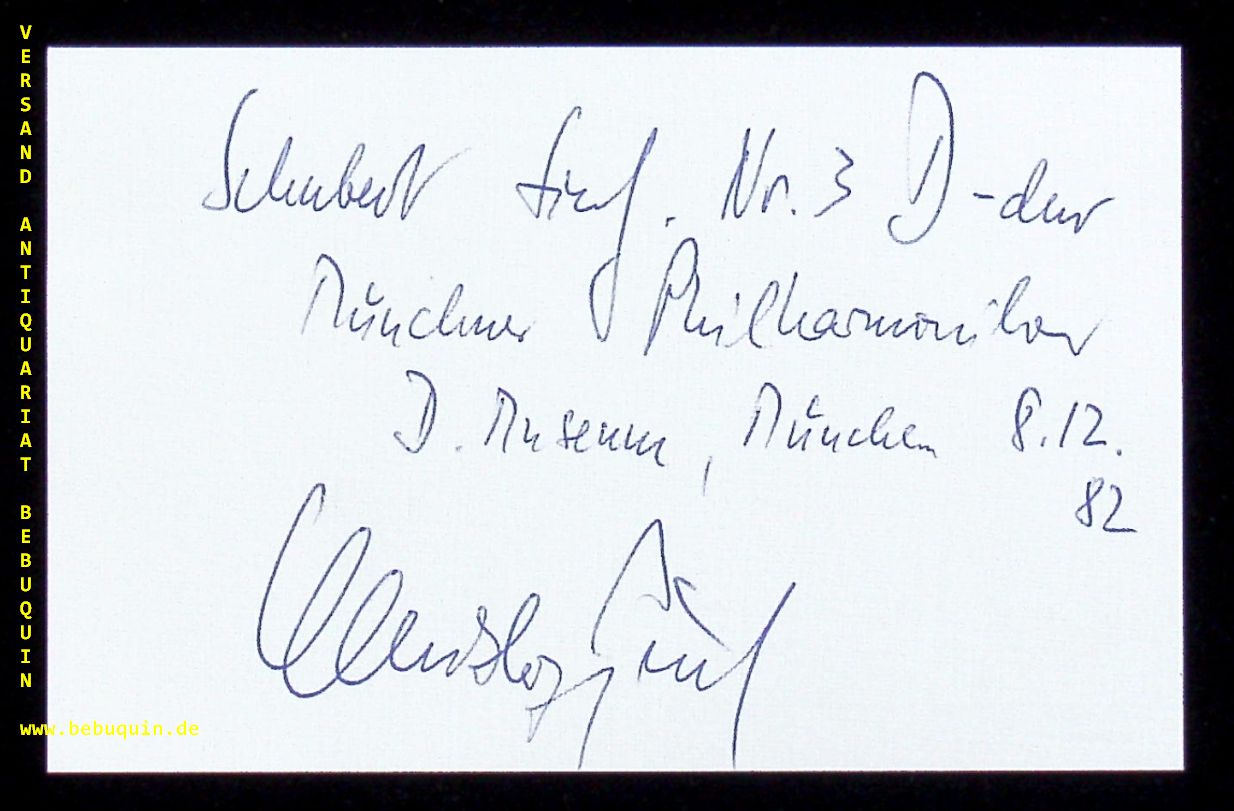 VERSAND ANTIQUARIAT BEBUQUIN
Schubert Sinf. Nr. 3 D-dur
Münchner Philharmoniker
D. Museum, München 8.12.
82
www.bebuquin.de